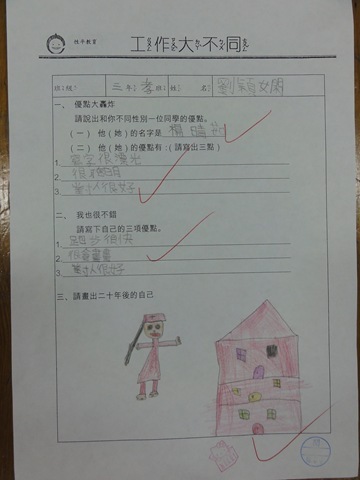 性平教育
工作大不同
班級 三年孝班 姓名 劉穎
一、 優點大轟炸
請說出和你不同性別一位同學的優點。
(一) 他(她)的名字是 楊晴
(二) 他(她)的優點有:(請寫出三點)
1.
2. 很聰明
3. 對人很好
二、 我也很不錯
請寫下自己的三項優點。
1. 跑步很快
2. 很會畫畫
3. 對人很好
三、請畫出二十年後的自己